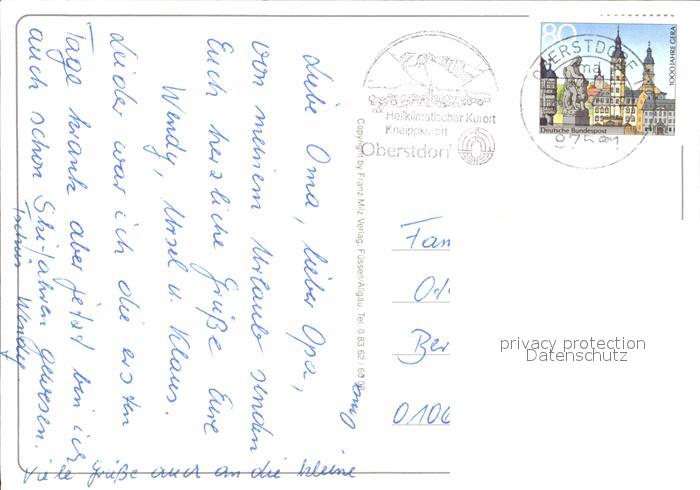 Liebe Oma, lieber Opa,
von meinem Urlaub senden
Euch herzliche Grüße Eure
Wendy, Ursel u. Klaus.
Leider war ich die ersten
Tage krank aber jetzt bin ich
auch schon Ski-fahren gewesen.
Tschüs Wendy
Viele Grüße auch an die kleine
Oma
Copyright by Franz Milz Verlag, Füssen/Allgäu, Tel. 0 83 62 /
Heilklimatischer Kurort
Kneippkurort
Oberstdorf
OBERSTDORF
80
1000 JAHRE GERA
Deutsche Bundespost
Fam
Ber
0106
privacy protection
Datenschutz